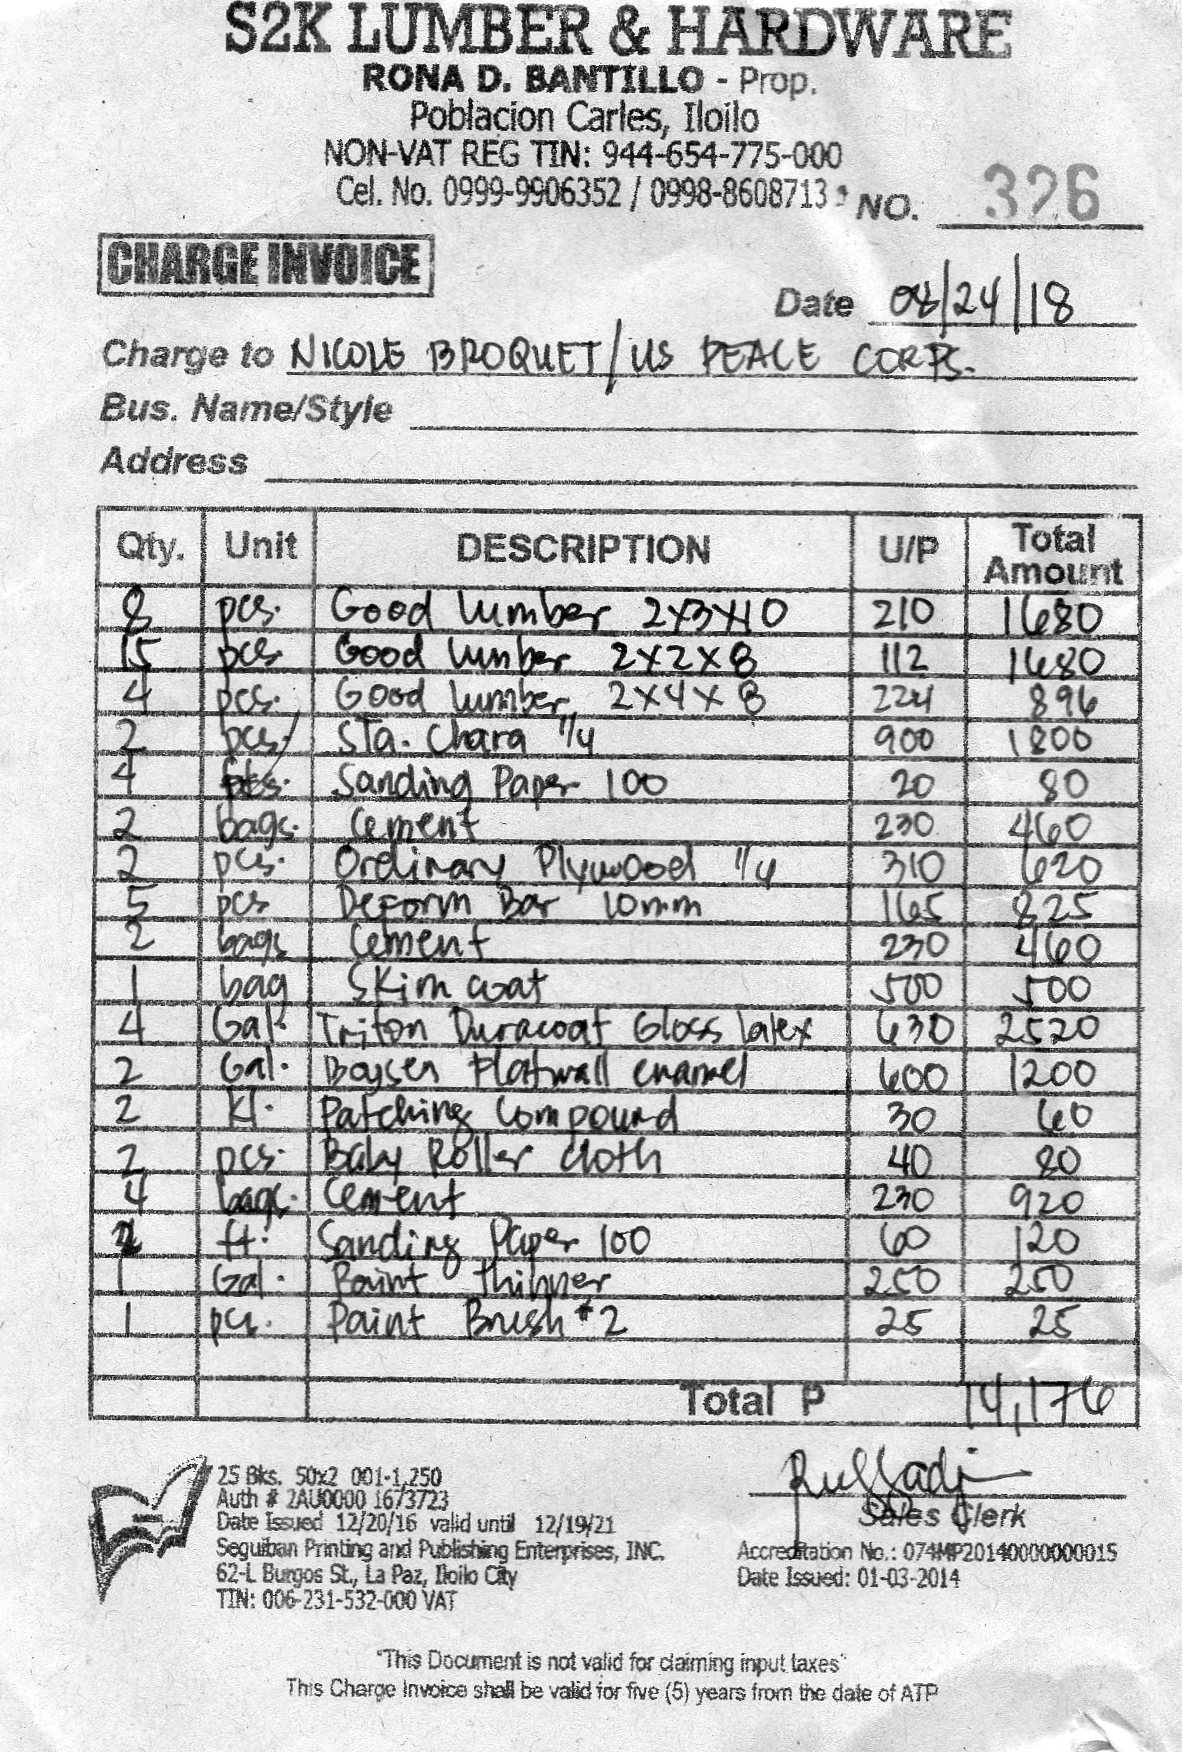 S2K LUMBER & HARDWARE
RONA D. BANTILLO - Prop.
Poblacion Carles, Iloilo
NON-VAT REG TIN: 944-654-775-000
Cel. No. 0999-9906352 / 0998-8608713
NO. 326
CHARGE INVOICE
Date 08/24/18
Charge to NICOLE BROQUET/US PEACE CORPS.
Bus. Name/Style
Address
Qty. Unit DESCRIPTION U/P Total Amount
8 pcs. Good lumber 2x3x10 210 1680
15 pcs Good lumber 2x2x8 112 1680
4 pcs. Good lumber 2x4x8 224 896
2 pcs. STa. Chara 1/4 900 1800
4 Sanding Paper 100 20 80
2 bags. Cement 230 460
2 pcs. Ordinary Plywood 1/4 310 620
5 pcs Deform Bar 10mm 165 825
2 bags Cement 230 460
1 bag Skim coat 500 500
4 Gal. Triton Duracoat Gloss latex 630 2520
2 Gal. Boysen Flatwall enamel 600 1200
2 Kl. Patching Compound 30 60
2 pcs. Baby Roller cloth 40 80
4 bags. Cement 230 920
2 ft. Sanding Paper 100 60 120
1 Gal. Paint thinner 250 250
1 pcs. Paint Brush #2 25 25
Total P 14,176
25 Bks. 50x2 001-1,250
Auth # 2AU0000 16/3723
Date Issued 12/20/16 valid until 12/19/21
Seguiban Printing and Publishing Enterprises, INC.
62-L Burgos St., La Paz, Iloilo City
TIN: 006-231-532-000 VAT
Sales Clerk
Accreditation No.: 074MP20140000000015
Date Issued: 01-03-2014
"This Document is not valid for claiming input taxes"
This Charge Invoice shall be valid for five (5) years from the date of ATP